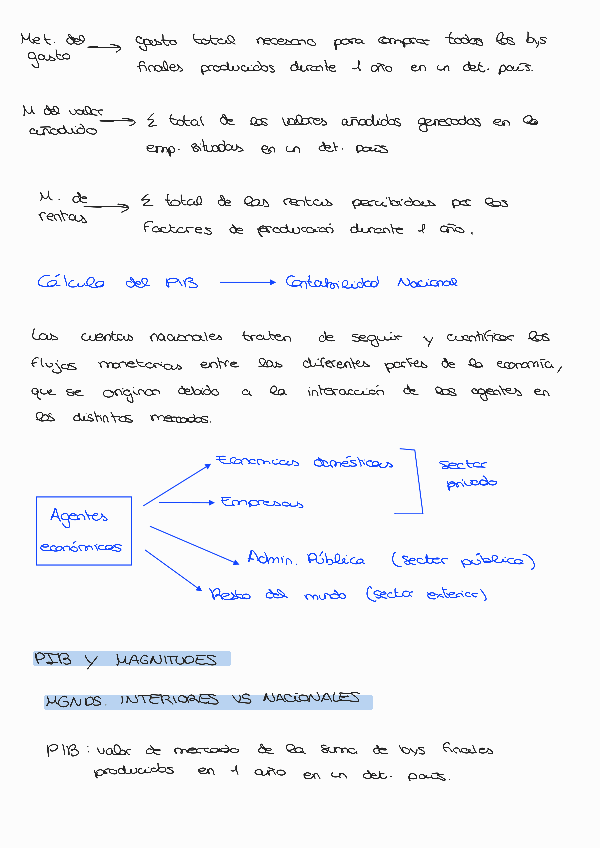 Met. del gasto → gasto total necesario para comprar todos los bys
finales producidos durante 1 año en un det. país.
M del valor añadido → Σ total de los valores añadidos generados en la
emp. situadas en un det. país
M. de rentas → Σ total de las rentas percibidas por los
factores de producción durante 1 año.
Cálculo del PIB → Contabilidad Nacional
Las cuentas nacionales traten de seguir y cuantificar los
flujos monetarios entre las diferentes partes de la economía,
que se originan debido a la interacción de los agentes en
los distintos mercados.
Agentes económicos
→ Economías domésticas
→ Empresas
sector privado
→ Admin. Pública (sector público)
→ Resto del mundo (sector exterior)
PIB Y MAGNITUDES
MGNDS. INTERIORES VS NACIONALES
PIB: valor de mercado de la suma de bys finales
producidos en 1 año en un det. país.